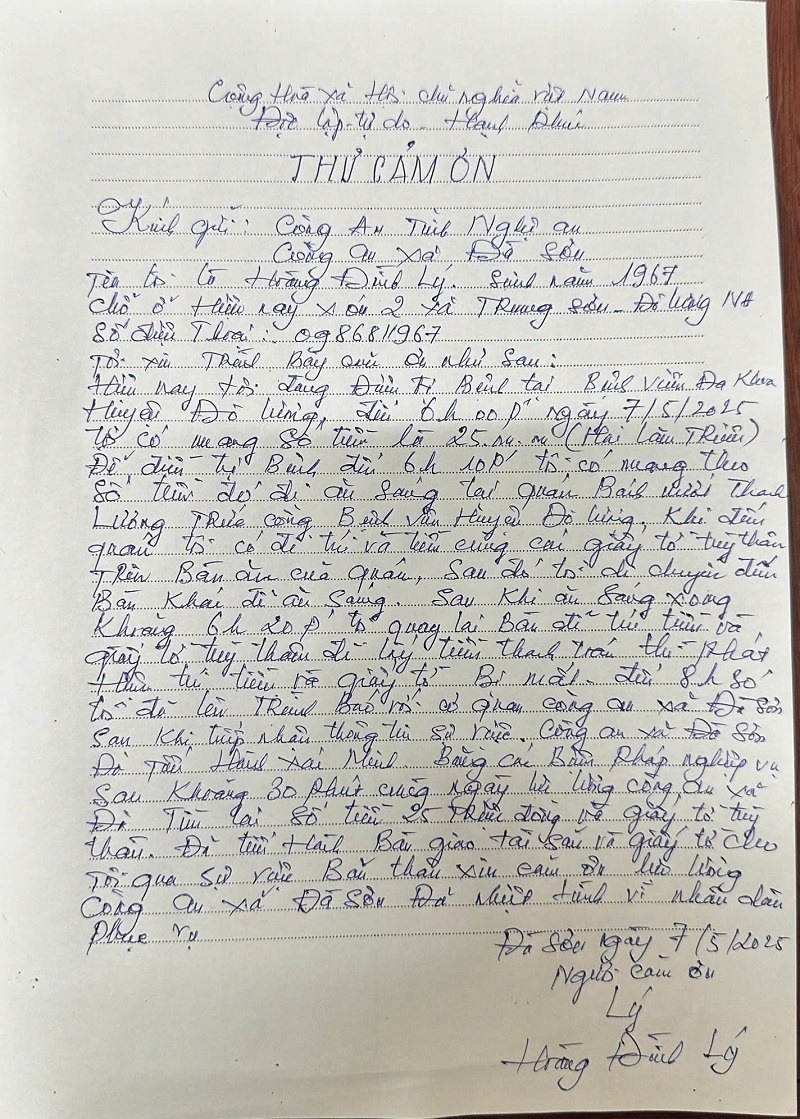 Cộng Hoà xã Hội chủ nghĩa việt Nam
Độc lập-tự do- Hạnh Phúc
THƯ CẢM ƠN
Kính gửi: Công An Tỉnh Nghệ an
Công an xã Đà Sơn
Tên tôi là Hoàng Đình Lý. Sinh năm 1967
Chỗ ở Hiện nay xóm 2 xã Trung Sơn - Đô lương NA
Số điện Thoại: 098681967
Tôi xin Trình Bày như sau:
Hiện nay tôi đang Điều Trị Bệnh tại Bệnh viện Đa Khoa
Huyện Đô lương, đến 6h 00P ngày 7/5/2025
tôi có mang Số tiền là 25.
Để điều trị Bệnh đến 6h 10P tôi có mang theo
Số tiền đó đi ăn sáng tại quán Bánh mướt Thanh
Lương Trước cổng Bệnh viện Huyện Đô lương, Khi đến
quán tôi có để túi và tiền cùng các giấy tờ tuỳ thân
Trên Bàn ăn của quán, Sau đó tôi di chuyển đến
Bàn Khác để ăn Sáng. Sau Khi ăn Sáng xong
Khoảng 6h 20P tôi quay lại Bàn để túi tiền và
giấy tờ tuỳ thân để lấy tiền thanh toán thì Phát
Hiện túi tiền và giấy tờ Bị mất. đến 8h số
tôi đã lên Trình Báo với cơ quan công an xã Đà Sơn
Sau Khi tiếp nhận thông tin Sự việc. Công an xã Đà Sơn
Đã Tiến Hành xác Minh Bằng các Biện Pháp nghiệp vụ
Sau Khoảng 30 Phút cùng ngày lực lượng công an xã
Đã Tìm lại Số tiền 25 Triệu đồng và giấy tờ tuỳ
thân. Đã tiến Hành Bàn giao tài sản và giấy tờ cho
Tôi qua Sự việc Bản thân xin cảm ơn lực lượng
Công an xã Đà Sơn Đã nhiệt tình vì nhân dân
Phục vụ
Đà Sơn ngày 7/5/2025
Người cảm ơn
Lý
Hoàng Đình Lý